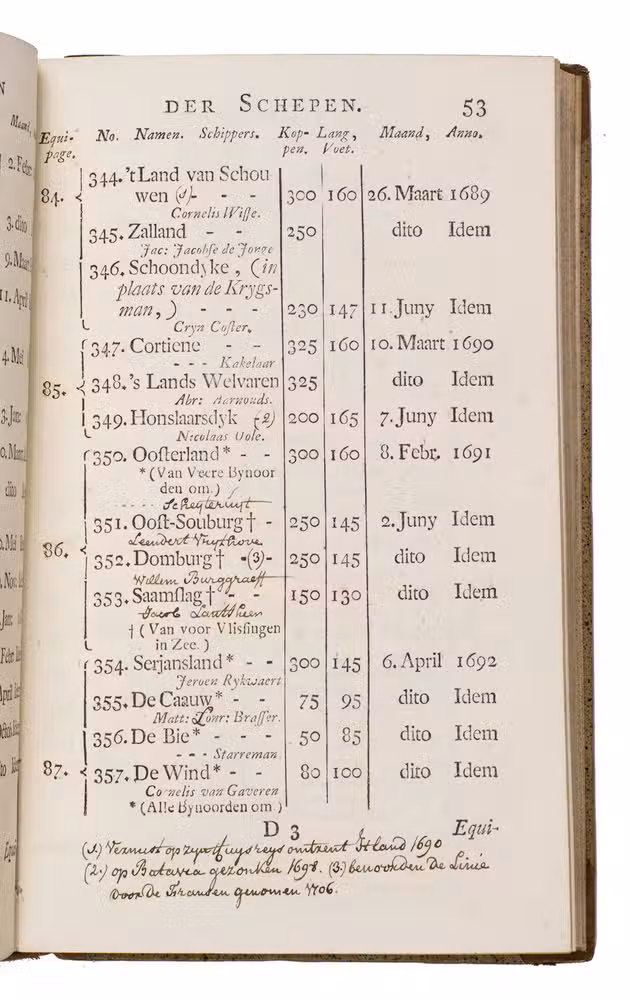 DER SCHEPEN. 53
Equi- No. Namen. Schippers. Kop- Lang, Maand, Anno.
page. pen. Voet.
344. 't Land van Schou
84. wen (1)- - - 300 160 26. Maart 1689
Cornelis Wisse.
345. Zalland - - 250 dito Idem
Jac: Jacobse de Jonge
346. Schoondyke, (in
plaats van de Krygs-
man,) - - - 230 147 11. Juny Idem
Cryn Coster.
347. Cortiene - - 325 160 10. Maart 1690
- - - Kakelaar
85. 348. 's Lands Welvaren 325 dito Idem
Abr: Aarnouds.
349. Honslaarsdyk (2) 200 165 7. Juny Idem
Nicolaas Vole.
350. Oosterland * - - 300 160 8. Febr. 1691
* (Van Veere Bynoor
den om.)
351. Oost-Souburg † - 250 145 2. Juny Idem
Leendert
86. 352. Domburg † -(3)- 250 145 dito Idem
Willem Burggraeff
353. Saamslag † - - 150 130 dito Idem
Jacob
† (Van voor Vlissingen
in Zee.)
354. Serjansland * - - 300 145 6. April 1692
Jeroen Rykwaert
355. De Caauw * - - 75 95 dito Idem
Matt: Lonr: Brasser.
356. De Bie * - - - 50 85 dito Idem
- - - Starreman
87. 357. De Wind * - - 80 100 dito Idem
Cornelis van Gaveren
* (Alle Bynoorden om)
D 3 Equi-
(1) Vermist op zyn thuysreys omtrent Ysland 1690
(2.) op Batavia gezonken 1698. (3) benoorden De Linie
door De Fransen genomen 1706.